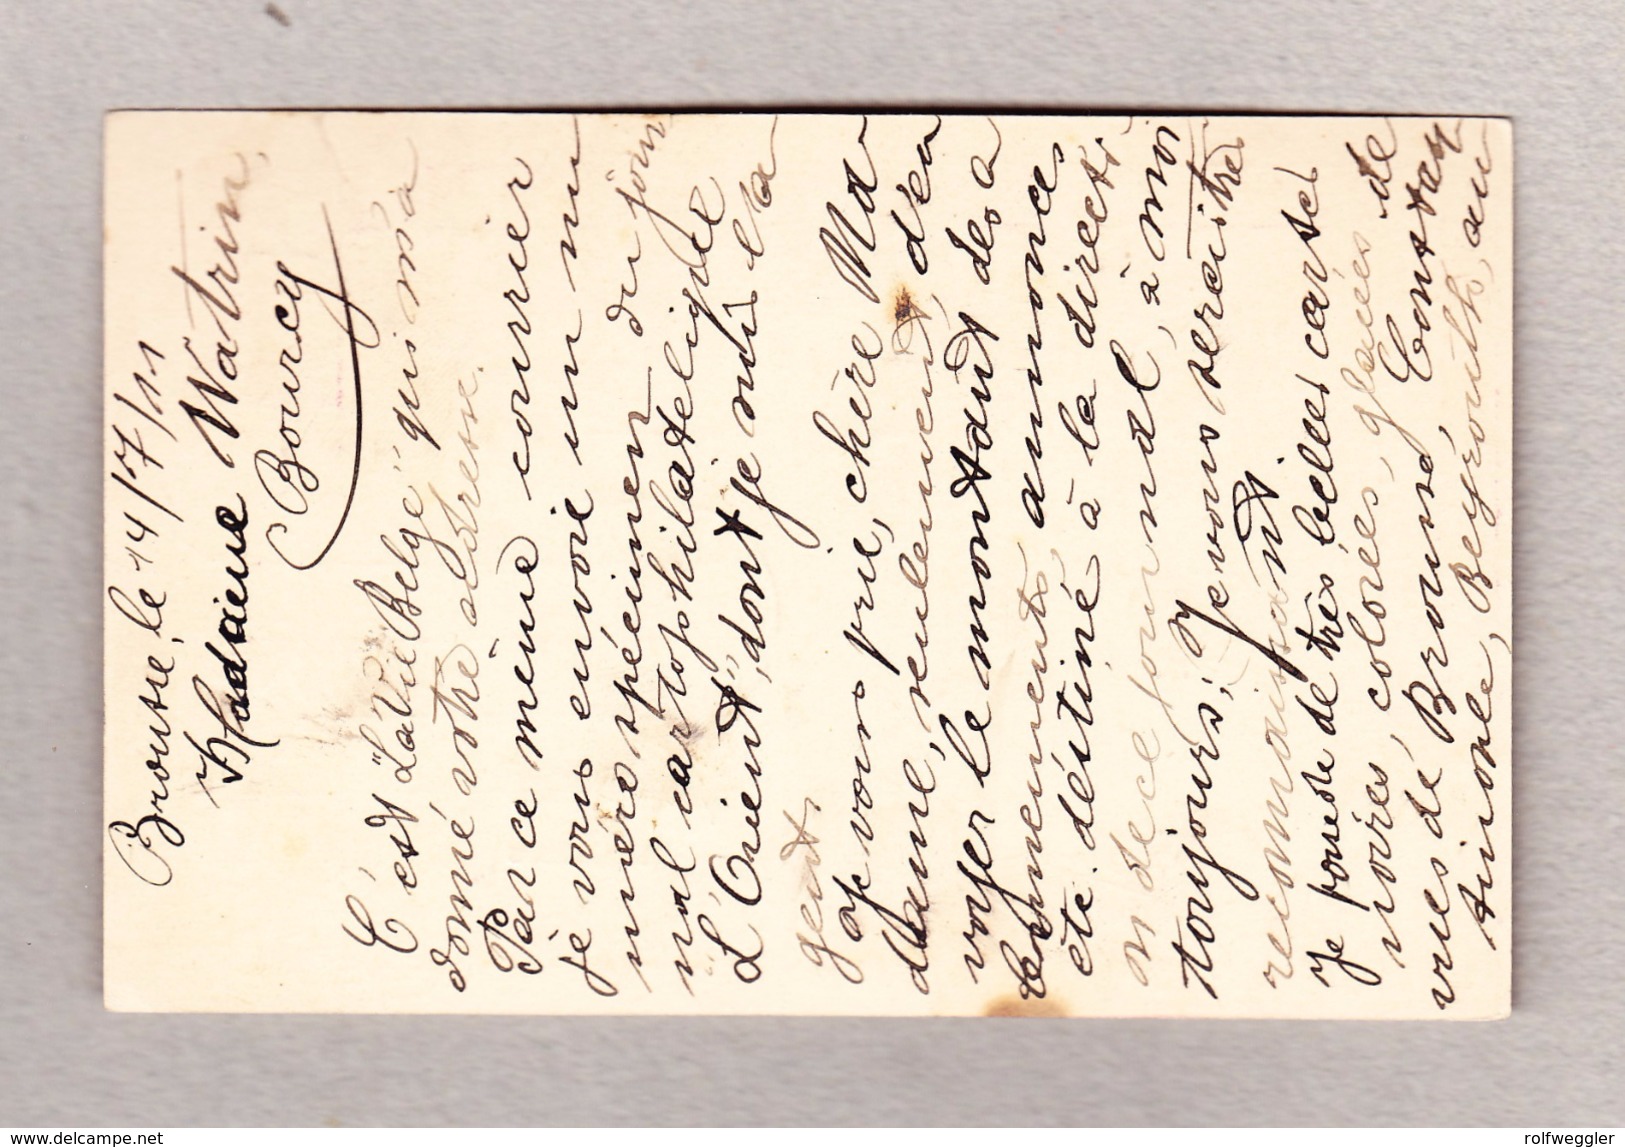 Brousse, le 14/7/11
Madame Watrin,
Bourcy
C'est "La Vie Belge" qui m'a
donné votre adresse.
Par ce même courrier
je vous envoie un nu
méro spécimen du jour
nal cartophilatelique
"L'Orient", dont je suis l'a
gent.
Je vous prie, chère Ma
dame, seulement, d'en
voyer le montant des a
bonnements, annonces,
etc. déstiné à la directi
on de ce journal, à moi
toujours; Je vous serai très
reconnaissant.
Je posséde de très belles cartes
noires, colorées, glacées de
vues de Brousse, Constan
tinople, Beyrouth, au
www.delcampe.net
rolfweggler